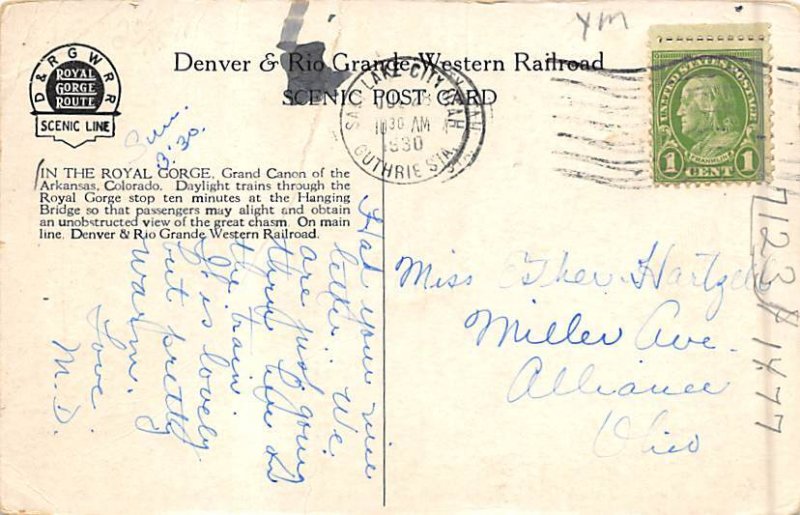 Denver & Rio Grande Western Railroad
SCENIC POST CARD
D & R G W R R
ROYAL
GORGE
ROUTE
SCENIC LINE
IN THE ROYAL GORGE, Grand Canon of the
Arkansas, Colorado. Daylight trains through the
Royal Gorge stop ten minutes at the Hanging
Bridge so that passengers may alight and obtain
an unobstructed view of the great chasm. On main
line. Denver & Rio Grande Western Railroad.
Sun.
3:30.
Had your nice
letter. We
are just going
thru here on
the train.
It is lovely
but pretty
warm.
Love.
M. D.
SALT LAKE CITY, UTAH
30 AM
1930
GUTHRIE STA.
UNITED STATES POSTAGE
FRANKLIN
1 CENT 1
Miss Esther Hartzell
Miller Ave.
Alliance
Ohio
7123 # 1477